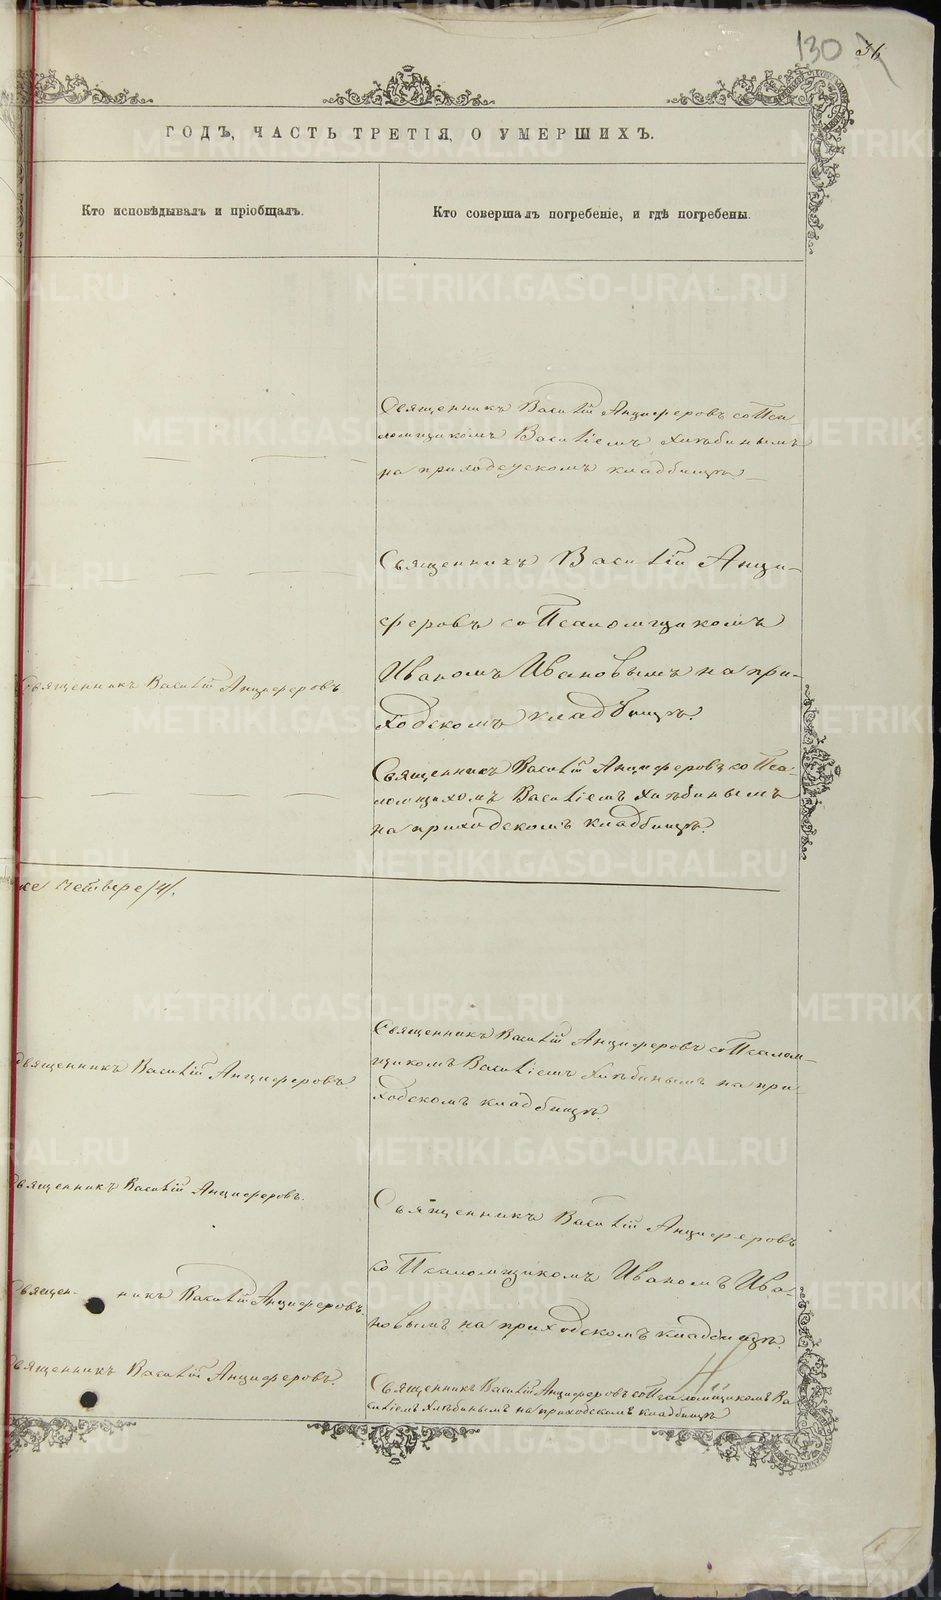 130
36
ГОДЪ, ЧАСТЬ ТРЕТІЯ, О УМЕРШИХЪ.
Кто исповѣдывалъ и пріобщалъ.
Кто совершалъ погребеніе, и гдѣ погребены.
Священникъ Василій Анциферовъ со Пса
ломщикомъ Василіемъ Хлѣбинымъ
на приходскомъ кладбищѣ
Священникъ Василій Анци-
феровъ со Псаломщикомъ
Иваномъ Ивановымъ на при-
ходскомъ кладбищѣ.
Священникъ Василій Анциферовъ
Священникъ Василій Анциферовъ со Пса-
ломщикомъ Василіемъ Хлѣбинымъ
на приходскомъ кладбищѣ.
же четверо /4/.
Священникъ Василій Анциферовъ со Псалом-
щикомъ Василіемъ Хлѣбинымъ на при-
ходскомъ кладбищѣ.
Священникъ Василій Анциферовъ
Священникъ Василій Анциферовъ.
Священникъ Василій Анциферовъ
со Псаломщикомъ Иваномъ Ива-
новымъ на приходскомъ кладбищѣ.
Священ- никъ Василій Анциферовъ.
Священникъ Василій Анциферовъ.
Священникъ Василій Анциферовъ со Псаломщикомъ Ва
силіемъ Хлѣбинымъ на приходскомъ кладбищѣ
METRIKI.GASO-URAL.RU